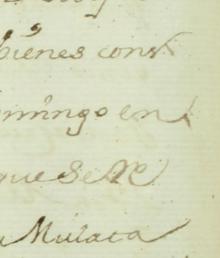 bienes const
omingo en
que se le
Mulata